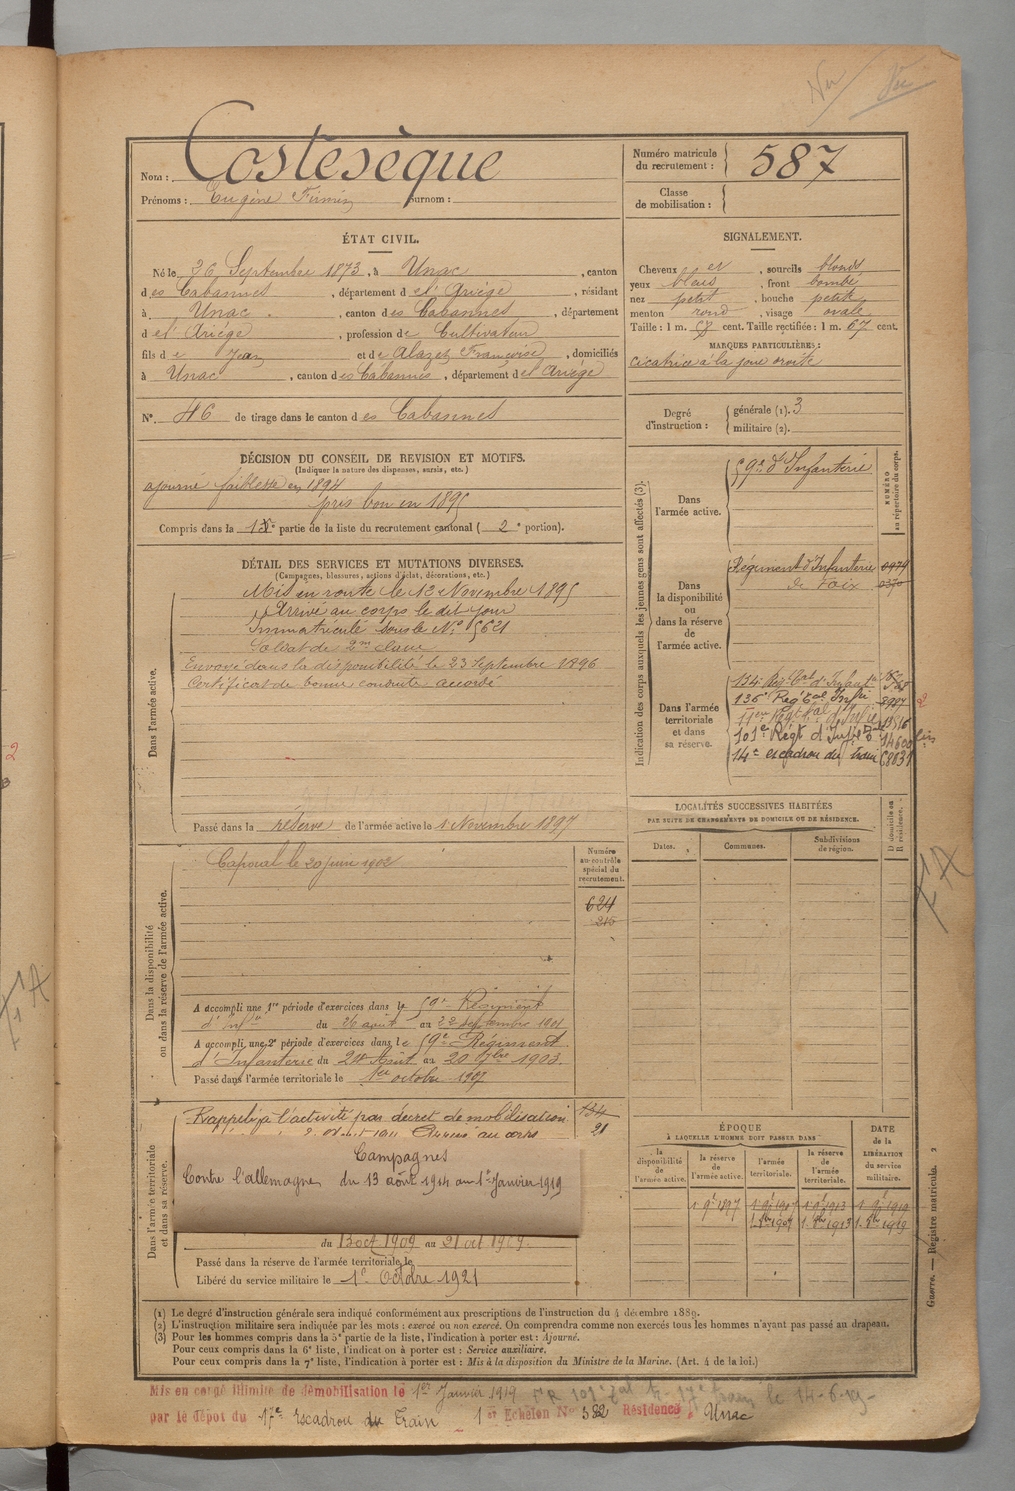 Nom : Costesèque
Numéro matricule du recrutement : 587
Prénoms : Eugène Firmin Surnom :
Classe de mobilisation :
ÉTAT CIVIL.
Né le 26 Septembre 1873, à Unac, canton
des Cabannes, département de l'Ariège, résidant
à Unac, canton des Cabannes, département
de l'Ariège, profession de Cultivateur
fils de Jean et de Alazet Françoise, domiciliés
à Unac, canton des Cabannes, département de l'Ariège
N° 46 de tirage dans le canton des Cabannes
SIGNALEMENT.
Cheveux et, sourcils blonds
yeux bleus, front bombé
nez petit, bouche petite
menton rond, visage ovale
Taille : 1 m. cent. Taille rectifiée : 1 m. 67 cent.
MARQUES PARTICULIÈRES :
cicatrice à la joue droite
Degré d'instruction : générale (1). 3
militaire (2).
DÉCISION DU CONSEIL DE REVISION ET MOTIFS.
(Indiquer la nature des dispenses, sursis, etc.)
ajourné faiblesse en 1894
pris bon en 1895
Compris dans la 1re partie de la liste du recrutement cantonal (2e portion).
DÉTAIL DES SERVICES ET MUTATIONS DIVERSES.
(Campagnes, blessures, actions d'éclat, décorations, etc.)
Dans l'armée active.
Mis en route le 12 Novembre 1895
Arrivé au corps le dit jour
Immatriculé sous le N° 5621
Soldat de 2me classe
Envoyé dans la disponibilité le 23 Septembre 1896
Certificat de bonne conduite accordé
Passé dans la réserve de l'armée active le 1 Novembre 1897
Indication des corps auxquels les jeunes gens sont affectés (3).
NUMÉRO au répertoire du corps.
Dans l'armée active.
59e d'Infanterie
Dans la disponibilité ou dans la réserve de l'armée active.
Régiment d'Infanterie 0979
de Foix 0370
Dans l'armée territoriale et dans sa réserve.
134e Rég. tal d'Infant
135e Rég tal Infie
101e Régt d'Infie 14600 bis
14e escadron du train C8831
LOCALITÉS SUCCESSIVES HABITÉES
PAR SUITE DE CHANGEMENTS DE DOMICILE OU DE RÉSIDENCE.
Dates.
Communes.
Subdivisions de région.
D domicile ou R résidence.
Dans la disponibilité ou dans la réserve de l'armée active.
Numéro au contrôle spécial du recrutement.
Caporal le 20 juin 1902
624
216
A accompli une 1re période d'exercices dans le 59e Régiment
d'Infie du 26 août au 22 septembre 1901
A accompli une 2e période d'exercices dans le 59e Régiment
d'Infanterie du 24 Août au 20 7bre 1903.
Passé dans l'armée territoriale le 1er octobre 1907
Dans l'armée territoriale et dans sa réserve.
Rappelé à l'activité par décret de mobilisation 134
Arrivé au corps 21
Campagnes
Contre l'allemagne du 13 août 1914 au 1er Janvier 1919
du 13 oct 1909 au 21 oct 1909.
Passé dans la réserve de l'armée territoriale le
Libéré du service militaire le 1er Octobre 1921
ÉPOQUE
À LAQUELLE L'HOMME DOIT PASSER DANS
la disponibilité de l'armée active.
la réserve de l'armée active.
l'armée territoriale.
la réserve de l'armée territoriale.
DATE de la LIBÉRATION du service militaire.
1 9e 1897
Guerre. — Registre matricule. 2
(1) Le degré d'instruction générale sera indiqué conformément aux prescriptions de l'instruction du 4 décembre 1889.
(2) L'instruction militaire sera indiquée par les mots : exercé ou non exercé. On comprendra comme non exercés tous les hommes n'ayant pas passé au drapeau.
(3) Pour les hommes compris dans la 5e partie de la liste, l'indication à porter est : Ajourné.
Pour ceux compris dans la 6e liste, l'indication à porter est : Service auxiliaire.
Pour ceux compris dans la 7e liste, l'indication à porter est : Mis à la disposition du Ministre de la Marine. (Art. 4 de la loi.)
Mis en congé illimité de démobilisation le 1er Janvier 1919
le 14-6-19-
par le dépot du 17e Escadron du Train 1er Echelon N° 582 Résidence Unac